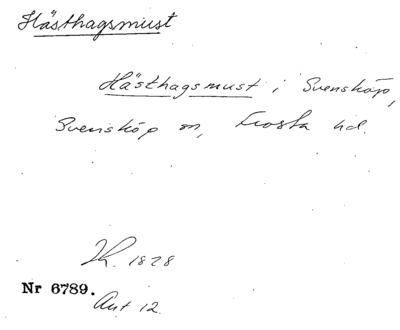 Hästhagsmust
Hästhagsmust i Svensköp,
Svensköp sn, Frosta hd.
1828
Nr 6789.
Avt 12.